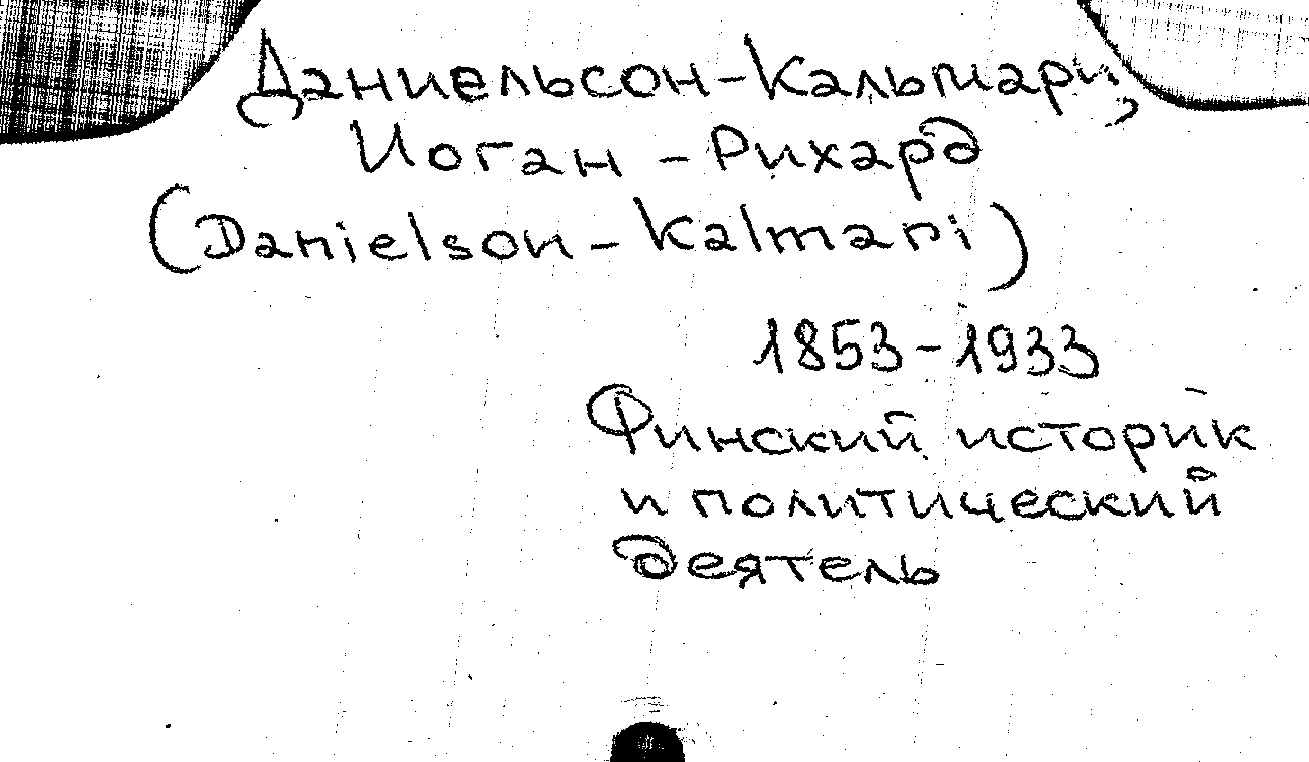 Даниельсон-Кальмари,
Иоган-Рихард
(Danielson-Kalmari)
1853-1933
Финский историк
и политический
деятель